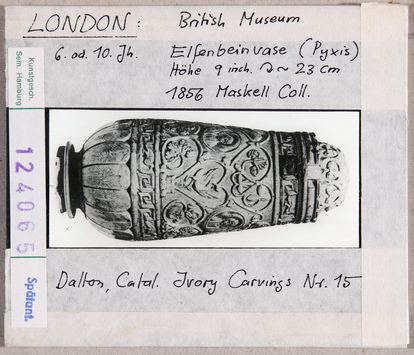 LONDON: British Museum
6. od. 10. Jh. Elfenbeinvase (Pyxis)
Höhe 9 inch. ~ 23 cm
1856 Maskell Coll.
Kunstgesch.
Sem. Hamburg
124065
Spätant.
Dalton, Catal. Ivory Carvings Nr. 15